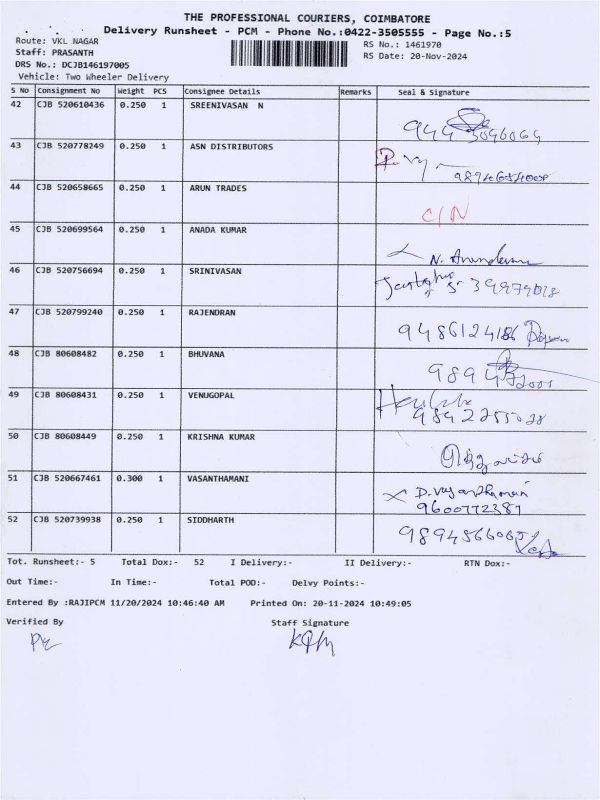 THE PROFESSIONAL COURIERS, COIMBATORE
Delivery Runsheet - PCM - Phone No.:0422-3505555 - Page No.:5
Route: VKL NAGAR
RS No.: 1461970
Staff: PRASANTH
RS Date: 20-Nov-2024
DRS No.: DCJB146197005
Vehicle: Two Wheeler Delivery
S No Consignment No Weight PCS Consignee Details Remarks Seal & Signature
42 CJB 520610436 0.250 1 SREENIVASAN N
43 CJB 520778249 0.250 1 ASN DISTRIBUTORS
44 CJB 520658665 0.250 1 ARUN TRADES C/N
45 CJB 520699564 0.250 1 ANADA KUMAR
46 CJB 520756694 0.250 1 SRINIVASAN
47 CJB 520799240 0.250 1 RAJENDRAN
48 CJB 80608482 0.250 1 BHUVANA
49 CJB 80608431 0.250 1 VENUGOPAL
50 CJB 80608449 0.250 1 KRISHNA KUMAR
51 CJB 520667461 0.300 1 VASANTHAMANI D. Vasanthamani
9600772387
52 CJB 520739938 0.250 1 SIDDHARTH
Tot. Runsheet:- 5 Total Dox:- 52 I Delivery:- II Delivery:- RTN Dox:-
Out Time:- In Time:- Total POD:- Delvy Points:-
Entered By :RAJIPCM 11/20/2024 10:46:40 AM Printed On: 20-11-2024 10:49:05
Verified By Staff Signature